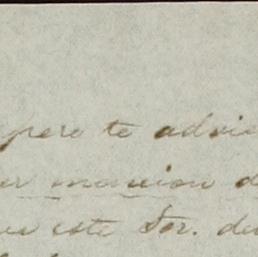 pero te advie
er mencion d
ue este Sor. de